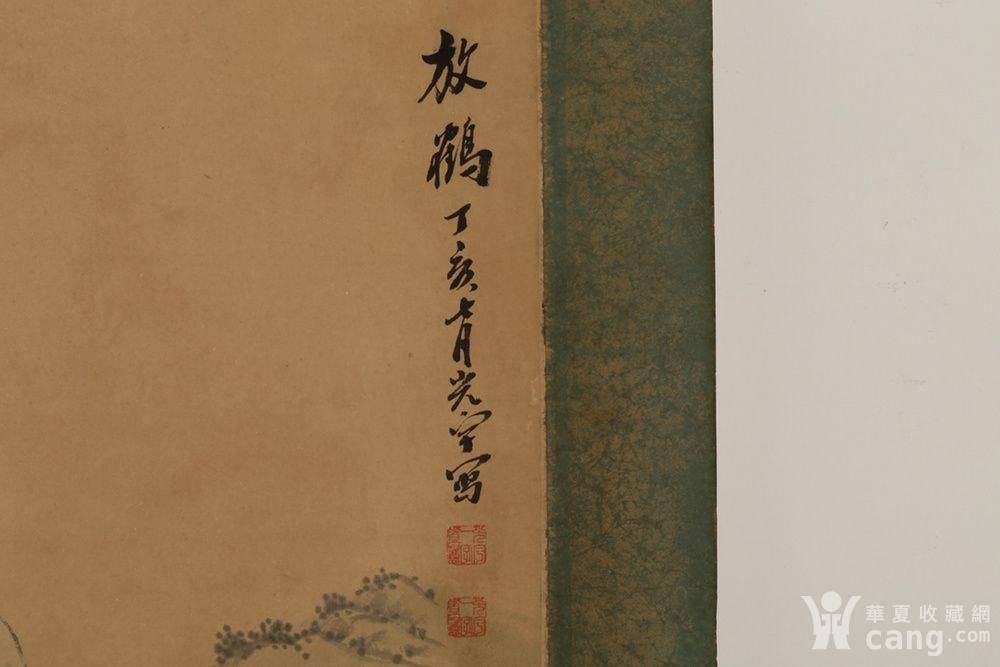 放鶴丁亥七月光宇寫
華夏收藏網
cang.com